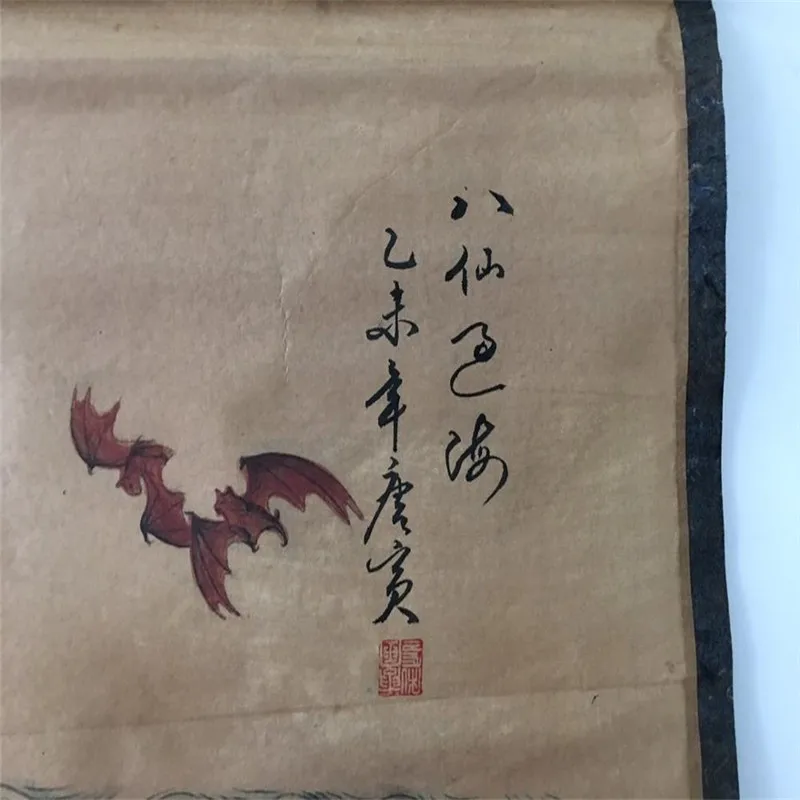 八仙過海
乙未年唐寅